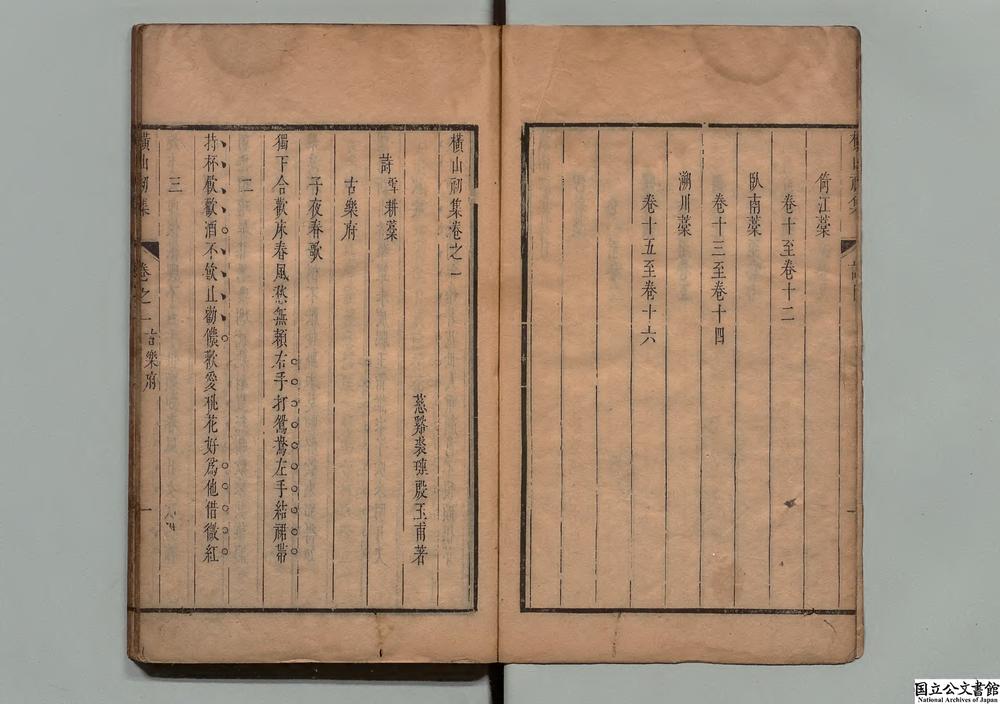 橫山初集
倚江藁
卷十至卷十二
臥南藁
卷十三至卷十四
溯川藁
卷十五至卷十六
橫山初集卷之一
慈谿裘璉殷玉甫著
詩 霅耕藁
古樂府
子夜春歌
獨下合歡床春風愁無賴右手打鴛鴦左手結裙帶
二
持杯勸歡酒不飲且勸儂歌愛桃花好爲他借微紅
三
橫山初集 卷之一 古樂府 一
国立公文書館
National Archives of Japan